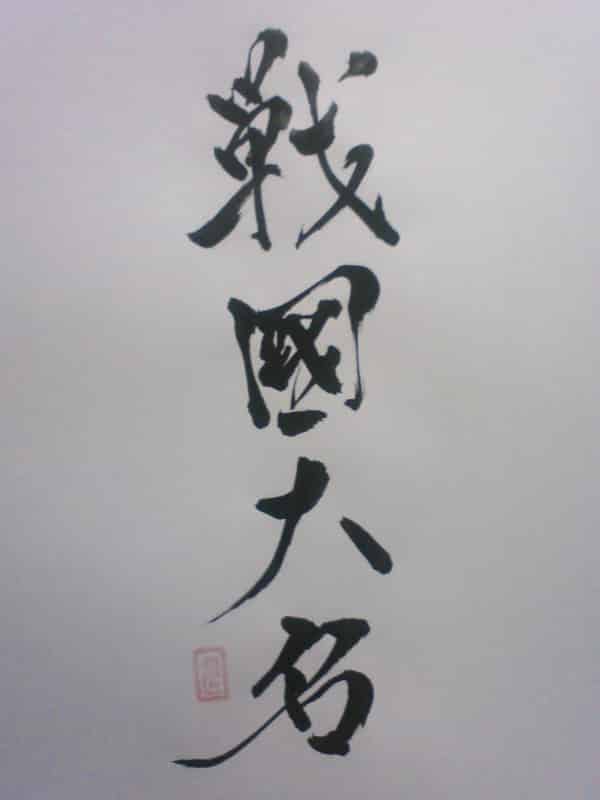 戦國大名